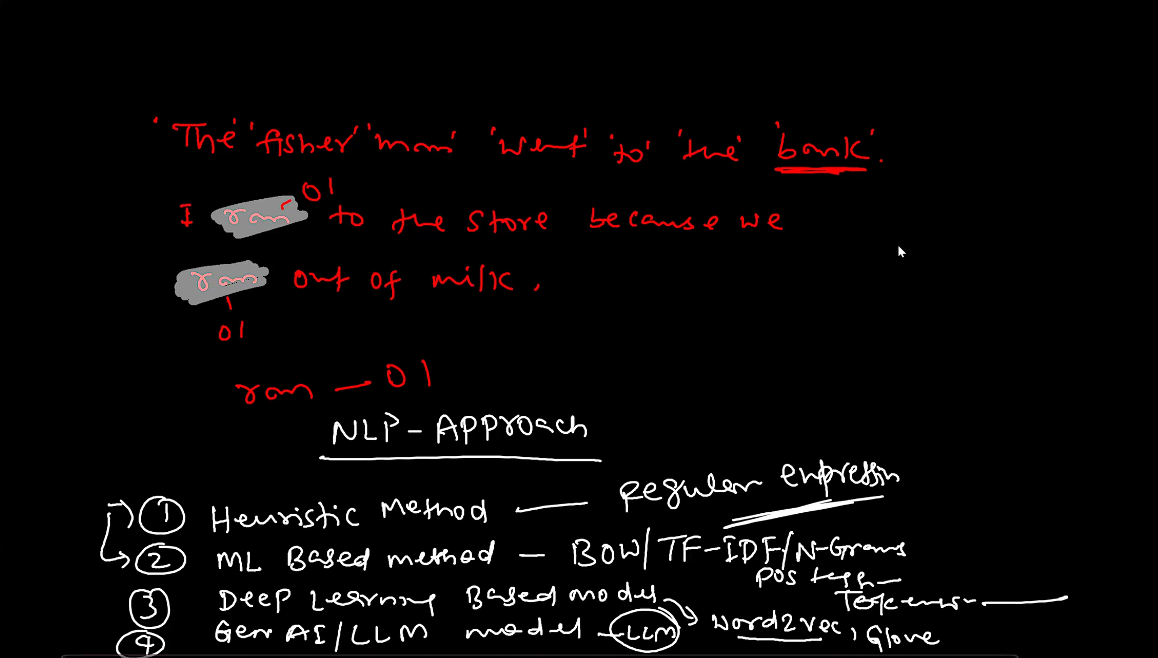 'The' 'fisher' 'man' 'went' 'to' 'the' 'bank'.
I ran 01 to the store because we
ran out of milk.
01
ran - 01
NLP - Approach
1 Heuristic Method - Regular Expression
2 ML Based method - BOW/TF-IDF/N-Grams
Pos
3 Deep Learning Based model
4 Gen AI/LLM model - LLM word2vec, Glove